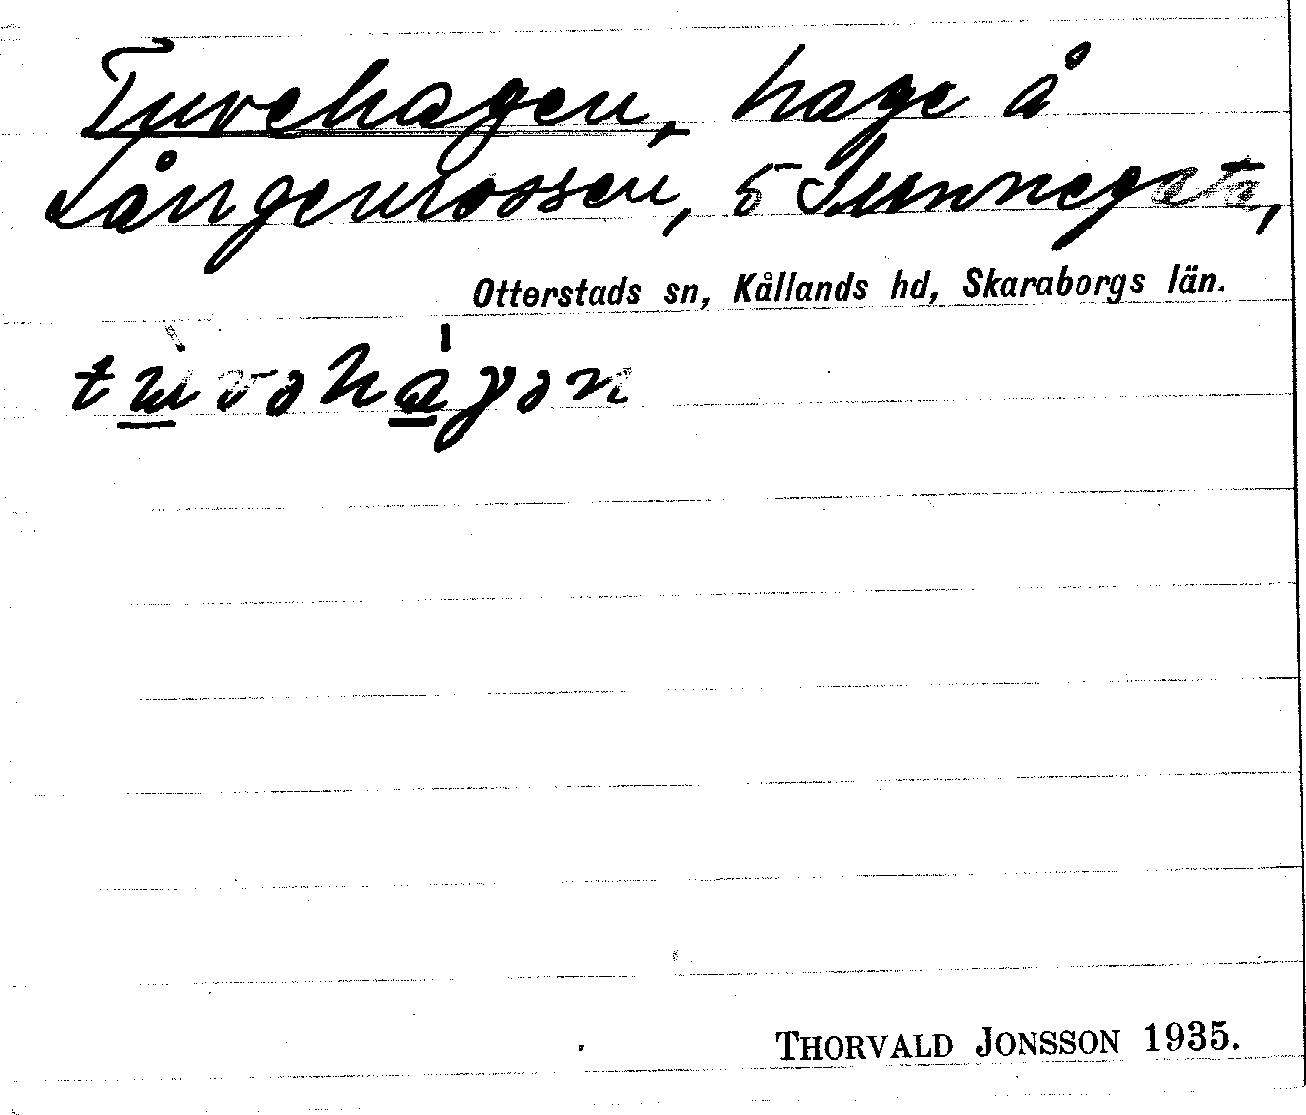 Turehagen, hage å
Långemossen, 5 Sunnegata,
Otterstads sn, Kållands hd, Skaraborgs län.
THORVALD JONSSON 1935.